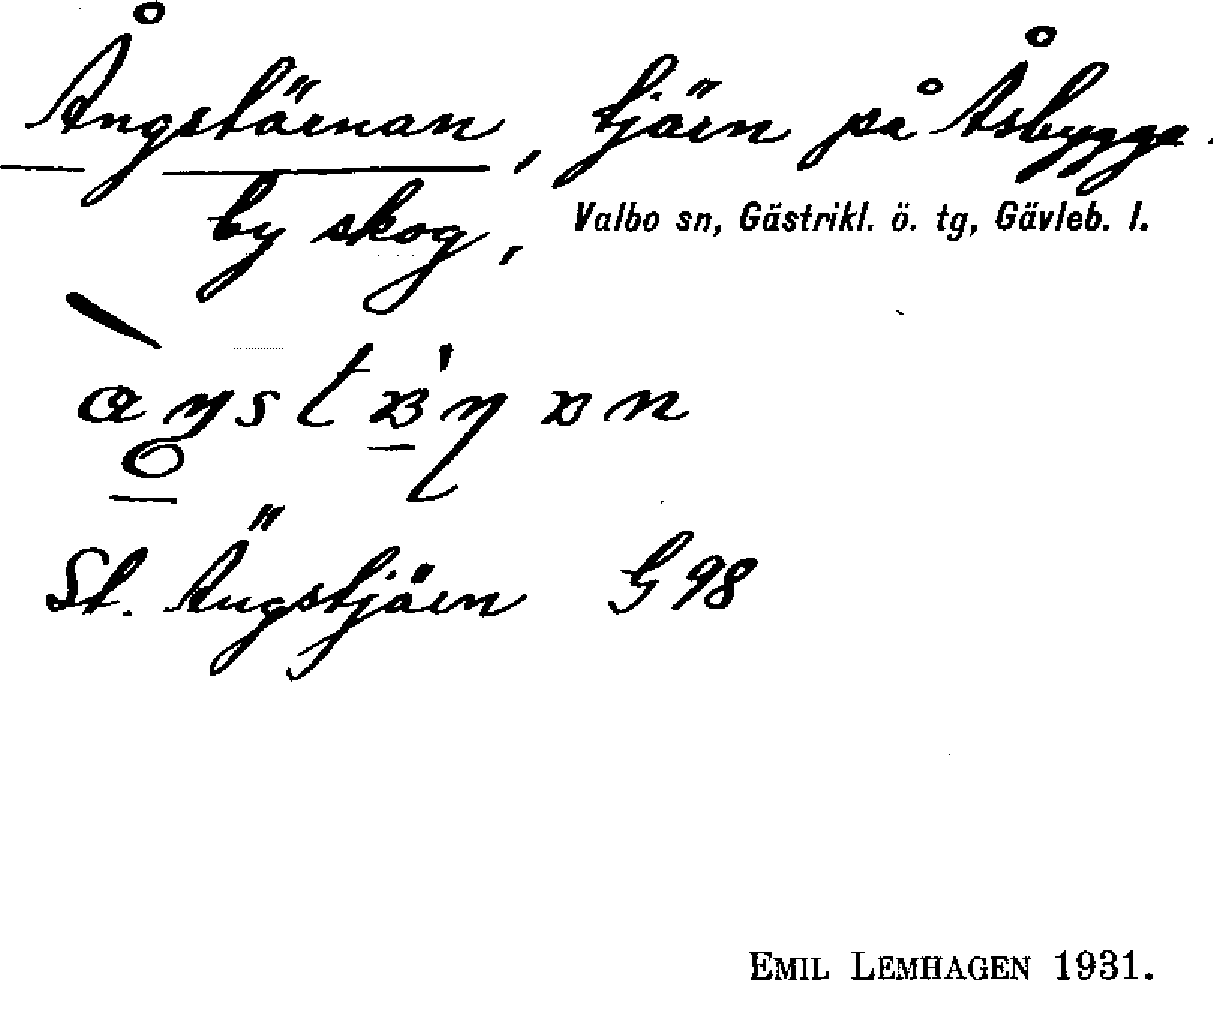 Ångstärnan, tjärn på Åsbygge
by skog,
Valbo sn, Gästrikl. ö. tg, Gävleb. l.
St. Ängstjärn G 98
EMIL LEMHAGEN 1931.